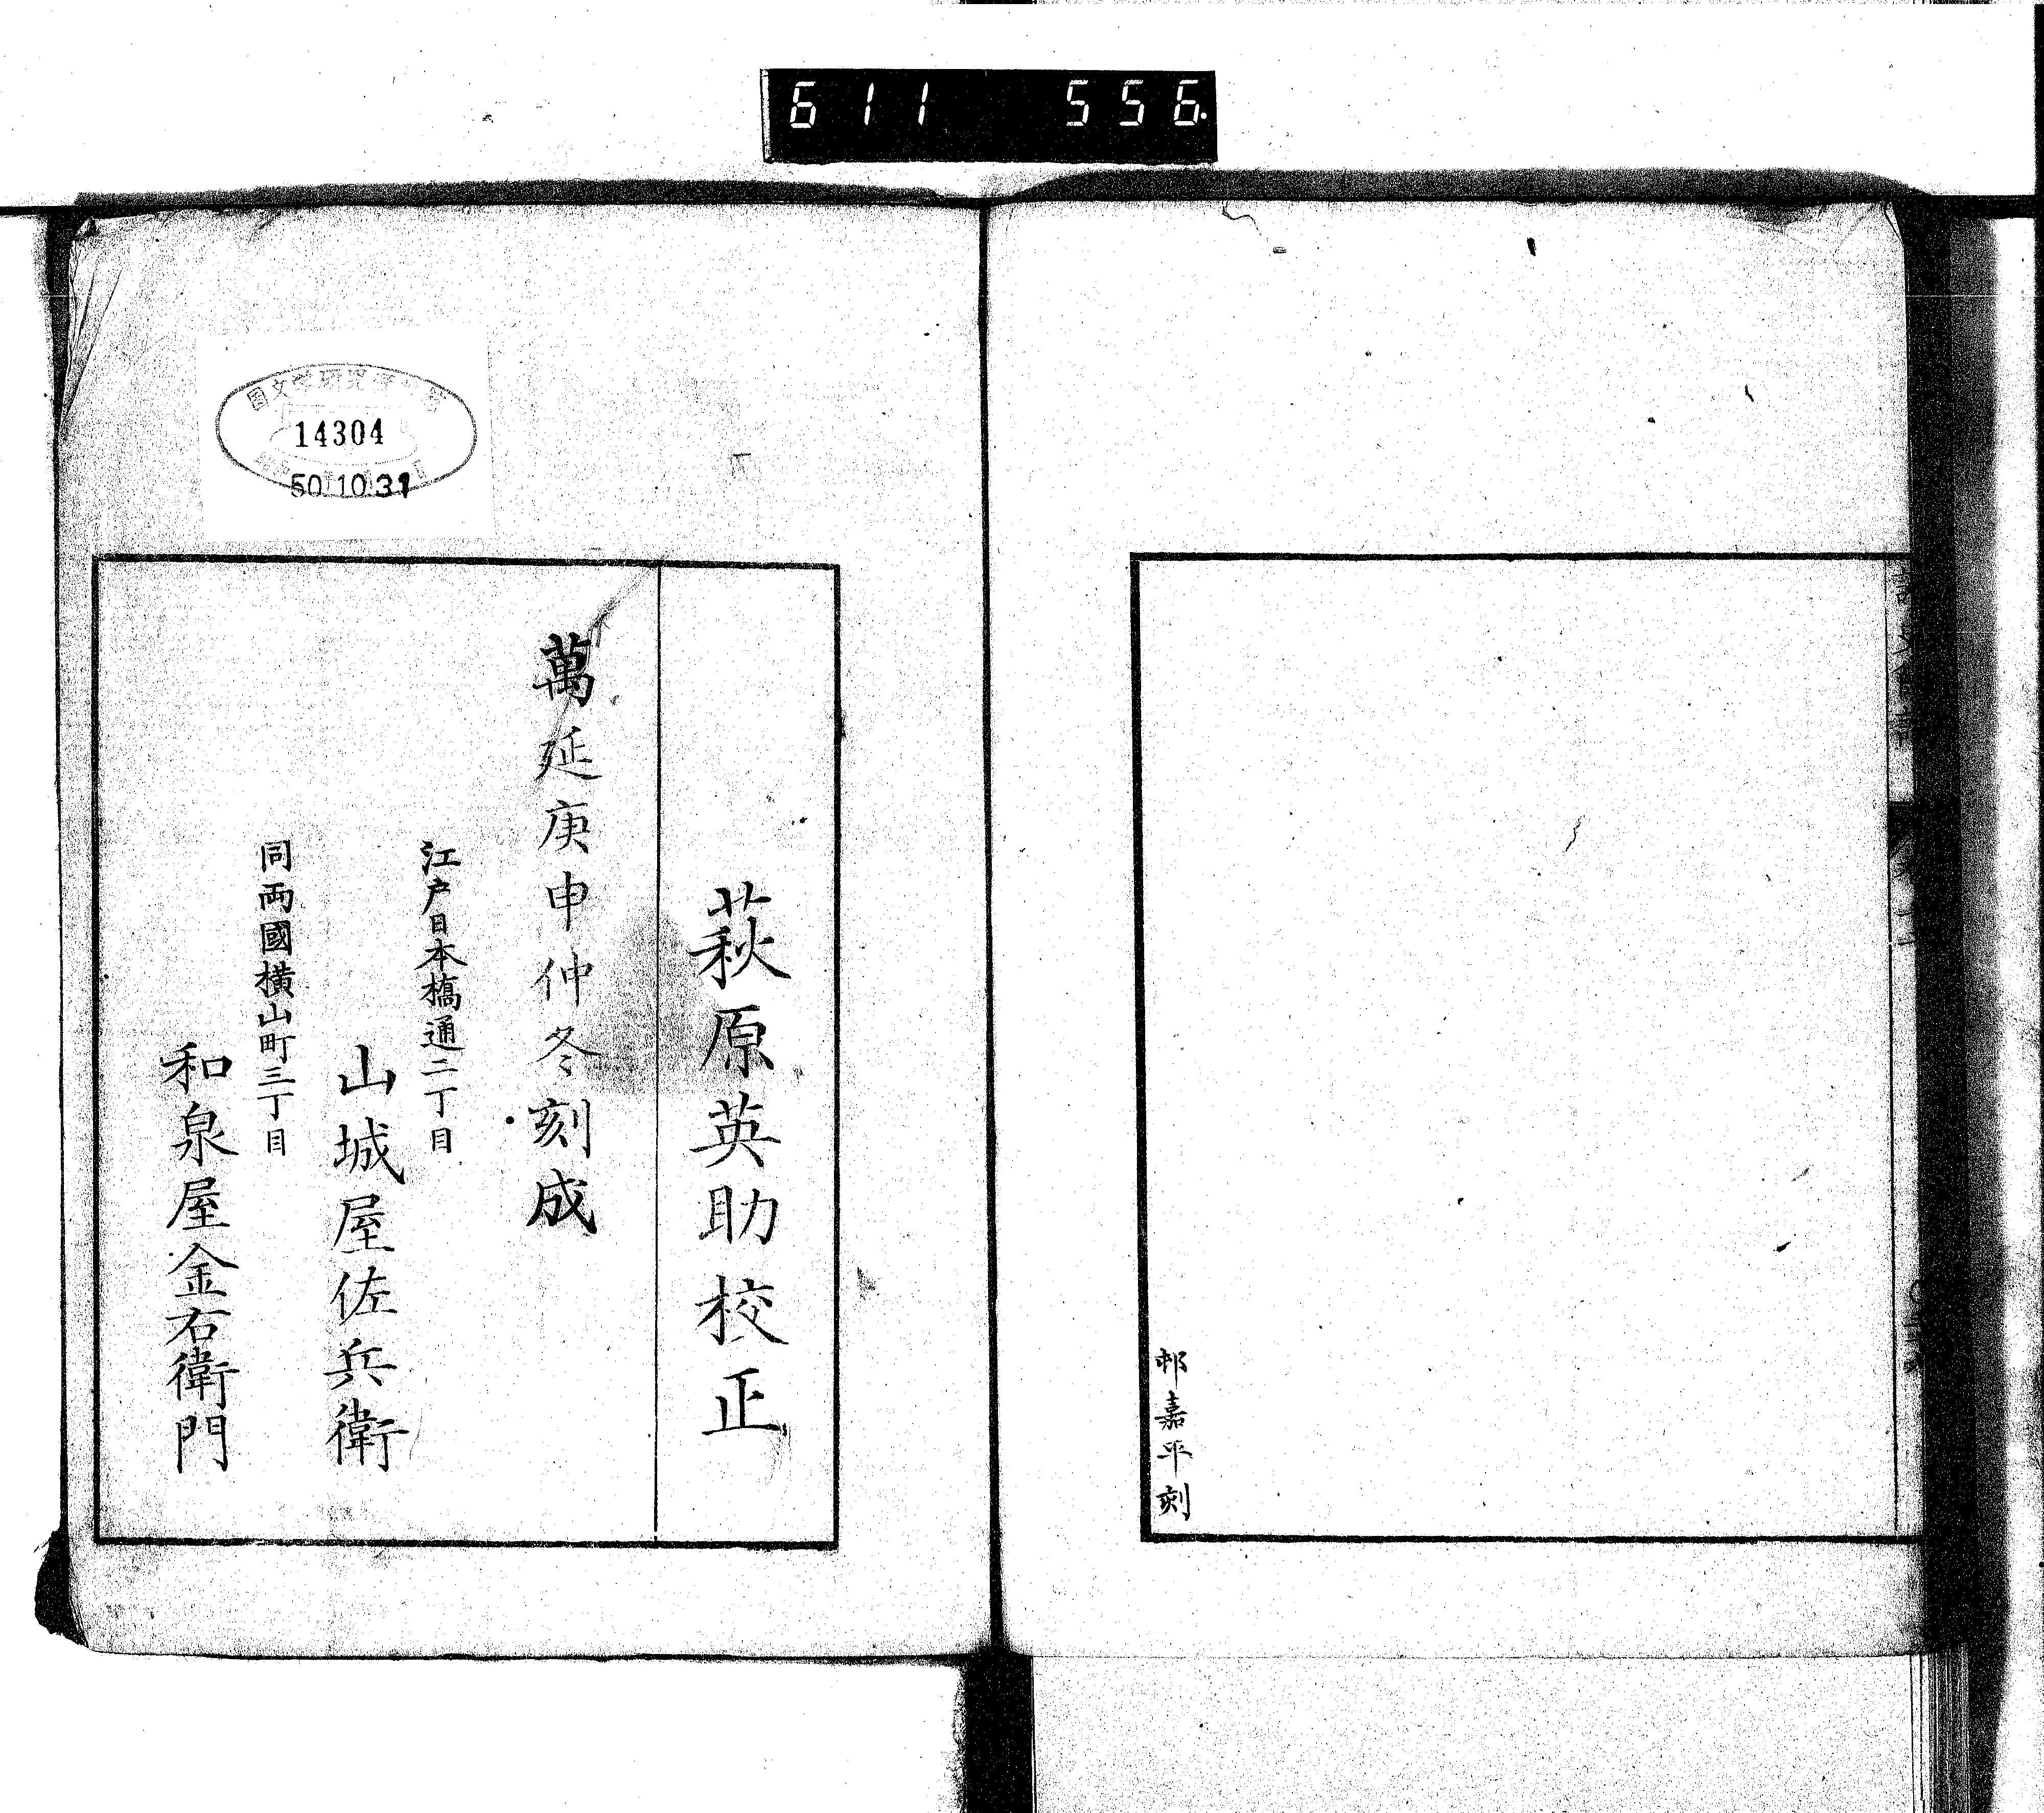 611 556.
邨嘉平刻
萩原英助校正
萬延庚申仲冬刻成
江戸日本橋通二丁目
山城屋佐兵衛
同両國横山町三丁目
和泉屋金右衛門
国文学研究資料館
14304
50.10.31